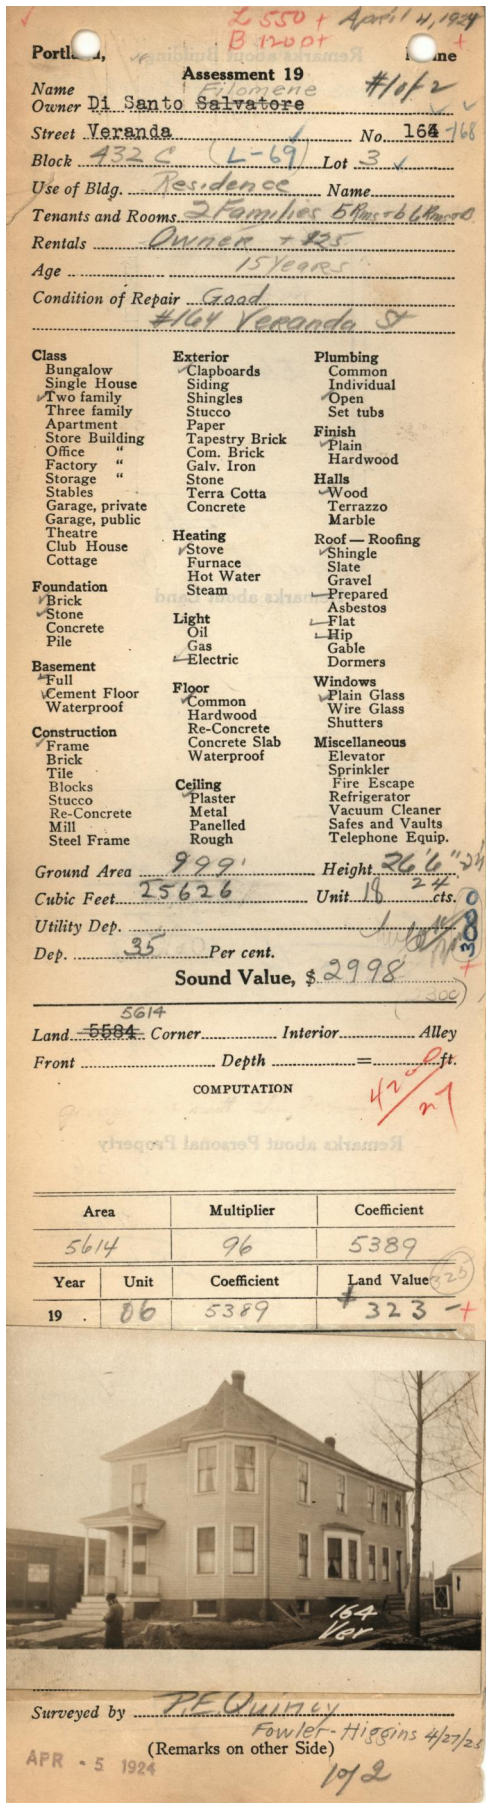 L 550 + April 4, 1924
B 1200+ +
Portland, Maine
Assessment 19
Filomene #1 of 2
Name
Owner Di Santo Salvatore
Street Veranda No. 164-168
Block 432 C (L-69) Lot 3
Use of Bldg. Residence Name
Tenants and Rooms 2 Families 5 Rms + b 6 Rms + B
Rentals Owner + $25
Age 15 Years
Condition of Repair Good
#164 Veranda St
Class
Bungalow
Single House
Two family
Three family
Apartment
Store Building
Office "
Factory "
Storage "
Stables
Garage, private
Garage, public
Theatre
Club House
Cottage
Foundation
Brick
Stone
Concrete
Pile
Basement
Full
Cement Floor
Waterproof
Construction
Frame
Brick
Tile
Blocks
Stucco
Re-Concrete
Mill
Steel Frame
Exterior
Clapboards
Siding
Shingles
Stucco
Paper
Tapestry Brick
Com. Brick
Galv. Iron
Stone
Terra Cotta
Concrete
Heating
Stove
Furnace
Hot Water
Steam
Light
Oil
Gas
Electric
Floor
Common
Hardwood
Re-Concrete
Concrete Slab
Waterproof
Ceiling
Plaster
Metal
Panelled
Rough
Plumbing
Common
Individual
Open
Set tubs
Finish
Plain
Hardwood
Halls
Wood
Terrazzo
Marble
Roof — Roofing
Shingle
Slate
Gravel
Prepared
Asbestos
Flat
Hip
Gable
Dormers
Windows
Plain Glass
Wire Glass
Shutters
Miscellaneous
Elevator
Sprinkler
Fire Escape
Refrigerator
Vacuum Cleaner
Safes and Vaults
Telephone Equip.
Ground Area 999' Height 26'6"
Cubic Feet 25626 Unit 18 24 cts.
Utility Dep.
3000
Dep. 35 Per cent.
+
Sound Value, $ 2998
(2300)
5614
Land 5584 Corner Interior Alley
Front Depth = ft.
COMPUTATION
4200/27
Remarks about Personal Property
Area Multiplier Coefficient
5614 96 5389
Year Unit Coefficient Land Value 325
19 06 5389 $323 - +
164
Ver
Surveyed by P.E. Quincy
Fowler-Higgins 4/27/23
(Remarks on other Side)
APR - 5 1924
1 of 2